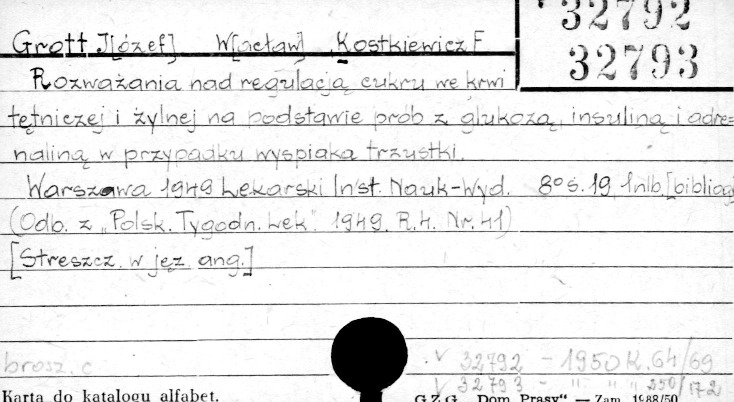 32792
Grott J[ózef] W[acław], Kostkiewicz F
32793
Rozważania nad regulacją cukru we krwi
tętniczej i żylnej na podstawie prób z glukozą, insuliną i adre=
naliną w przypadku wyspiaka trzustki.
Warszawa 1949 Lekarski Inst. Nauk-Wyd. 8° s. 19, 1nlb. [bibliogr
(Odb. z „Polsk. Tygodn. Lek". 1949. R.4. Nr. 41)
[Streszcz. w jęz. ang.]
brosz. c
v 32792 - 1950 K. 64/69
v 32793 - " " " 250/172
Karta do katalogu alfabet.
G.Z.G. „Dom Prasy" — Zam. 1988/50